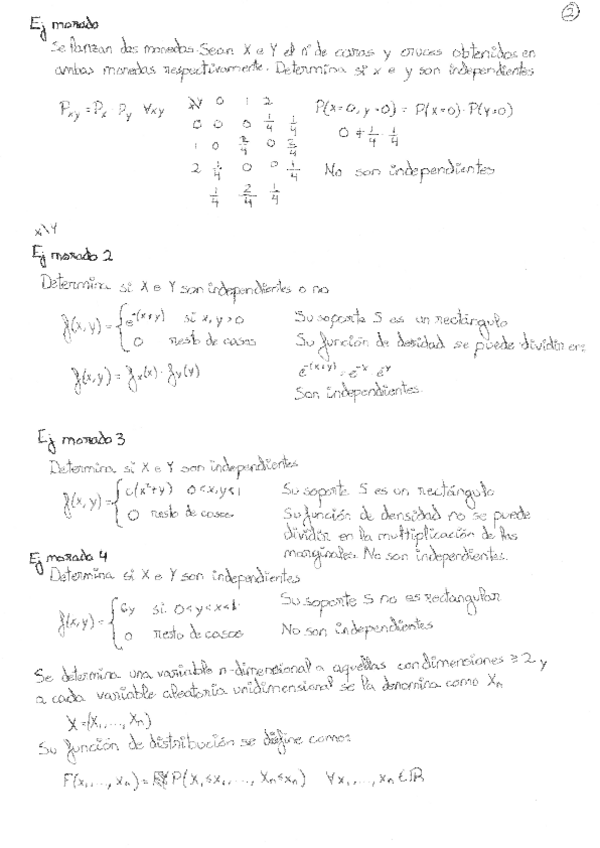 2
Ej morado
Se lanzan dos monedas. Sean X e Y el nº de caras y cruces obtenidos en
ambas monedas respectivamente. Determina si x e y son independientes
Pxy = Px · Py ∀xy
X\Y 0 1 2
0 0 0 1/4 1/4
1 0 2/4 0 2/4
2 1/4 0 0 1/4
1/4 2/4 1/4
P(x=0, y=0) = P(x=0) · P(y=0)
0 ≠ 1/4 · 1/4
No son independientes
X\Y
Ej morado 2
Determina si X e Y son independientes o no
f(x,y) = { e^-(x+y) si x,y>0
0 resto de casos
f(x,y) = fx(x) · fy(y)
Su soporte S es un rectángulo
Su función de densidad se puede dividir en:
e^-(x+y) = e^-x e^y
Son independientes.
Ej morado 3
Determina si X e Y son independientes
f(x,y) = { c(x²+y) 0<x,y≤1
0 resto de casos
Su soporte S es un rectángulo
Su función de densidad no se puede
dividir en la multiplicación de las
marginales. No son independientes.
Ej morado 4
Determina si X e Y son independientes
f(x,y) = { 6y si 0<y<x<1
0 resto de casos
Su soporte S no es rectangular
No son independientes
Se determina una variable n-dimensional a aquellas con dimensiones ≥ 2 y
a cada variable aleatoria unidimensional se la denomina como Xn
X=(X1, ..., Xn)
Su función de distribución se define como:
F(x1, ..., xn) = P(X1≤x1, ..., Xn≤xn) ∀x1, ..., xn ∈ ℝ